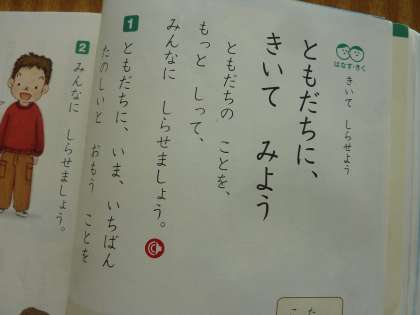 はなす・きく
きいて しらせよう
ともだちに、
きいて みよう
ともだちの ことを、
もっと しって、
みんなに しらせましょう。
1 ともだちに、いま、いちばん
たのしいと おもう ことを
2 みんなに しらせましょう。